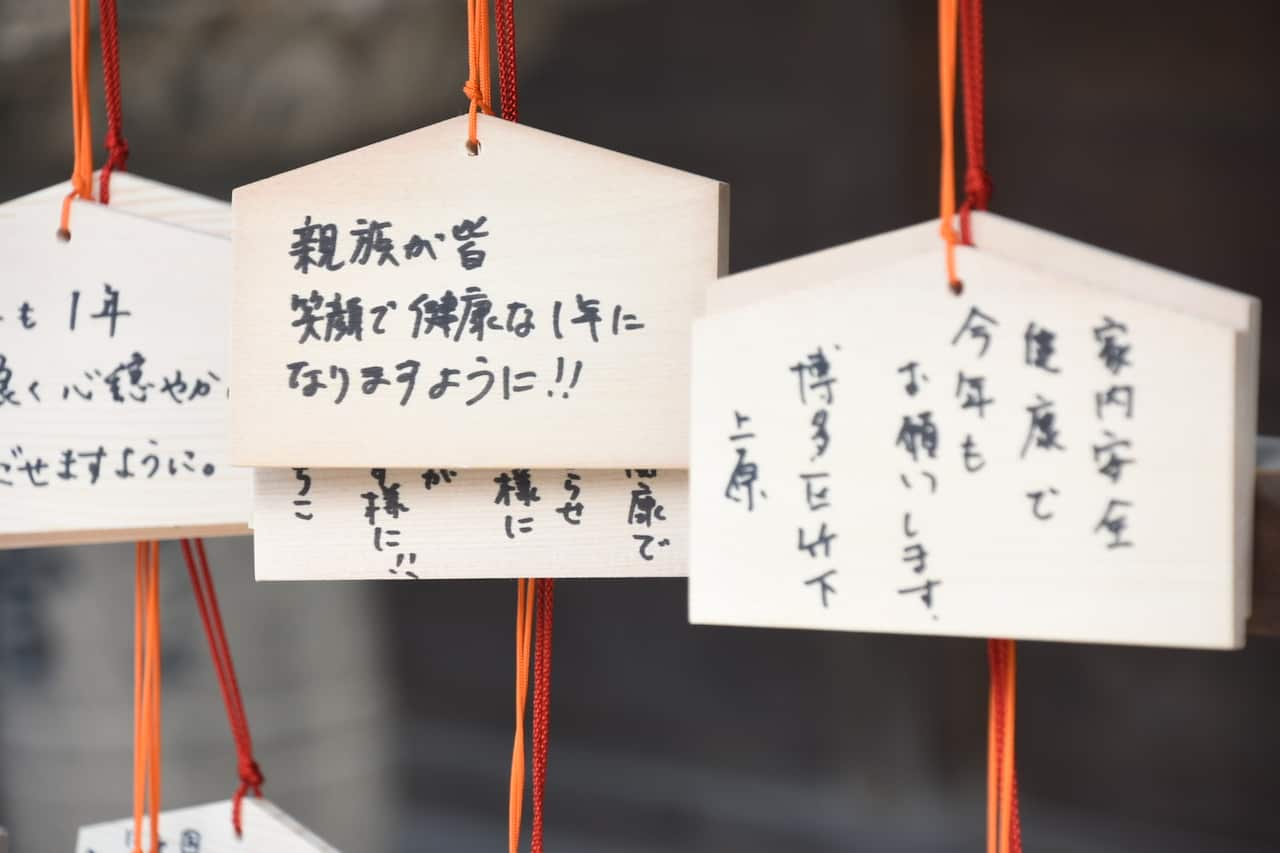 も1年
良く心穏やか
ごせますように。
親族が皆
笑顔で健康な1年に
なりますように!!
康で
らせ
様に
が
す様に!!
家内安全
健康で
今年も
お願いします.
博多区竹下
上原